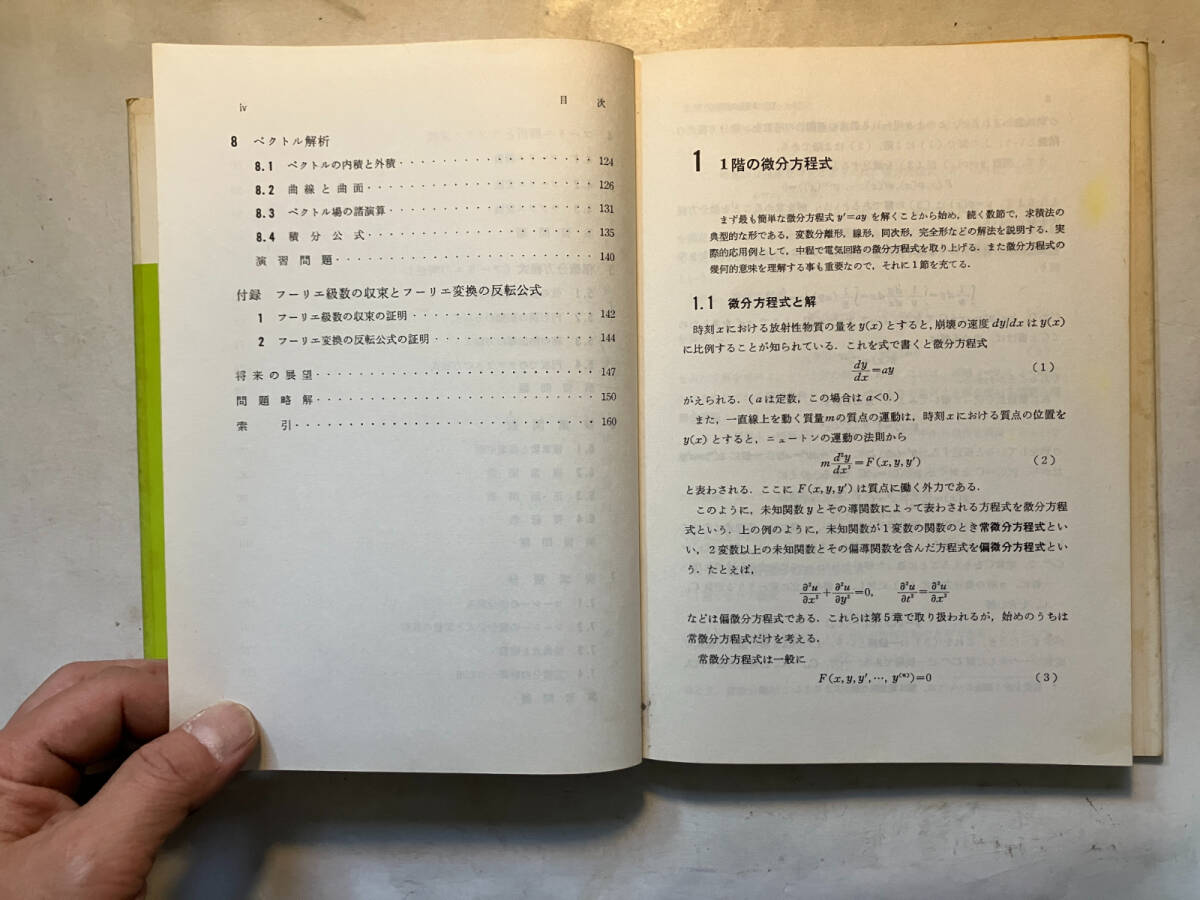 iv 目 次
8 ベクトル解析
8.1 ベクトルの内積と外積・・・・・・・・・・・・・・・・・・124
8.2 曲線と曲面・・・・・・・・・・・・・・・・・・・・・126
8.3 ベクトル場の諸演算・・・・・・・・・・・・・・・・・・・131
8.4 積分公式・・・・・・・・・・・・・・・・・・・・・135
演習問題・・・・・・・・・・・・・・・・・・・・・・・・140
付録 フーリエ級数の収束とフーリエ変換の反転公式
1 フーリエ級数の収束の証明・・・・・・・・・・・・・・・・・142
2 フーリエ変換の反転公式の証明・・・・・・・・・・・・・・・144
将来の展望・・・・・・・・・・・・・・・・・・・・・・・・・・147
問題略解・・・・・・・・・・・・・・・・・・・・・・・・・・150
索 引・・・・・・・・・・・・・・・・・・・・・・・・・・・・160
1 1階の微分方程式
まず最も簡単な微分方程式 y′=ay を解くことから始め,続く数節で,求積法の
典型的な形である,変数分離形,線形,同次形,完全形などの解法を説明する.実
際的応用例として,中程で電気回路の微分方程式を取り上げる.また微分方程式の
幾何的意味を理解する事も重要なので,それに1節を充てる.
1.1 微分方程式と解
時刻xにおける放射性物質の量を y(x) とすると,崩壊の速度 dy/dx は y(x)
に比例することが知られている.これを式で書くと微分方程式
dy/dx=ay (1)
がえられる.(aは定数,この場合は a<0.)
また,一直線上を動く質量mの質点の運動は,時刻xにおける質点の位置を
y(x) とすると,ニュートンの運動の法則から
m d²y/dx²=F(x, y, y′) (2)
と表わされる.ここに F(x, y, y′) は質点に働く外力である.
このように,未知関数 y とその導関数によって表わされる方程式を微分方程
式という.上の例のように,未知関数が1変数の関数のとき常微分方程式とい
い,2変数以上の未知関数とその偏導関数を含んだ方程式を偏微分方程式とい
う.たとえば,
∂²u/∂x²+∂²u/∂y²=0, ∂²u/∂t²=∂²u/∂x²
などは偏微分方程式である.これらは第5章で取り扱われるが,始めのうちは
常微分方程式だけを考える.
常微分方程式は一般に
F(x, y, y′, …, y⁽ⁿ⁾)=0 (3)